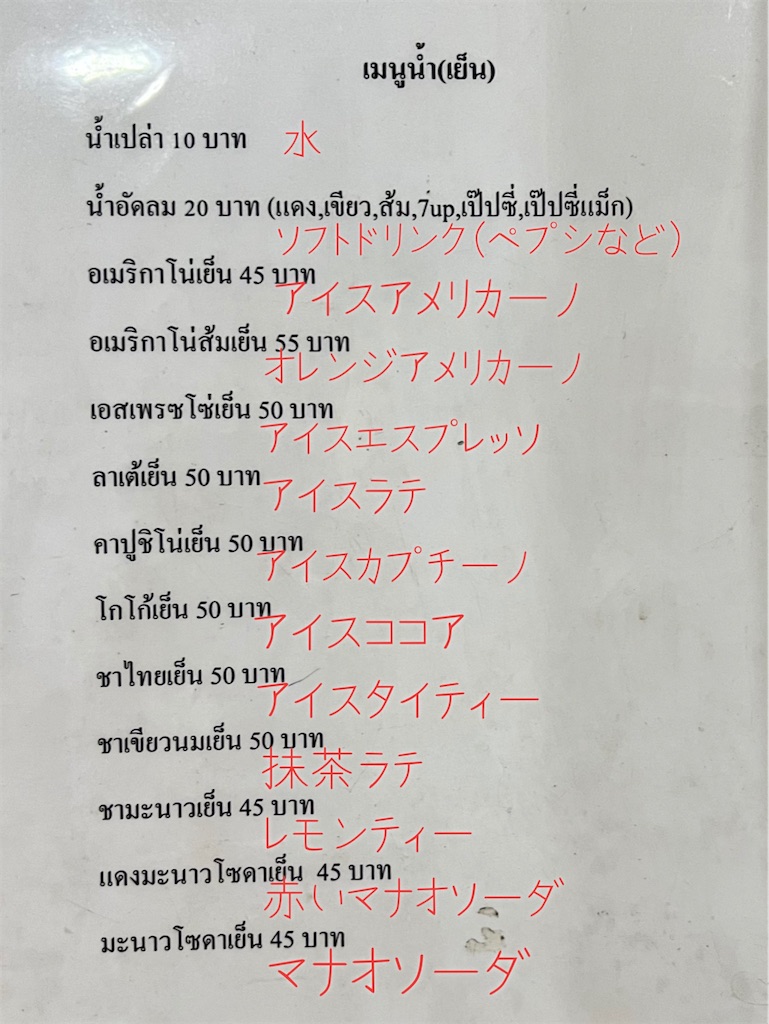 เมนูน้ำ(เย็น)
น้ำเปล่า 10 บาท 水
น้ำอัดลม 20 บาท (แดง,เขียว,ส้ม,7up,เป๊ปซี่,เป๊ปซี่แม็ก)
ソフトドリンク(ペプシなど)
อเมริกาโน่เย็น 45 บาท
アイスアメリカーノ
อเมริกาโน่ส้มเย็น 55 บาท
オレンジアメリカーノ
เอสเพรซโซ่เย็น 50 บาท
アイスエスプレッソ
ลาเต้เย็น 50 บาท
アイスラテ
คาปูชิโน่เย็น 50 บาท
アイスカプチーノ
โกโก้เย็น 50 บาท
アイスココア
ชาไทยเย็น 50 บาท
アイスタイティー
ชาเขียวนมเย็น 50 บาท
抹茶ラテ
ชามะนาวเย็น 45 บาท
レモンティー
แดงมะนาวโซดาเย็น 45 บาท
赤いマナオソーダ
มะนาวโซดาเย็น 45 บาท
マナオソーダ